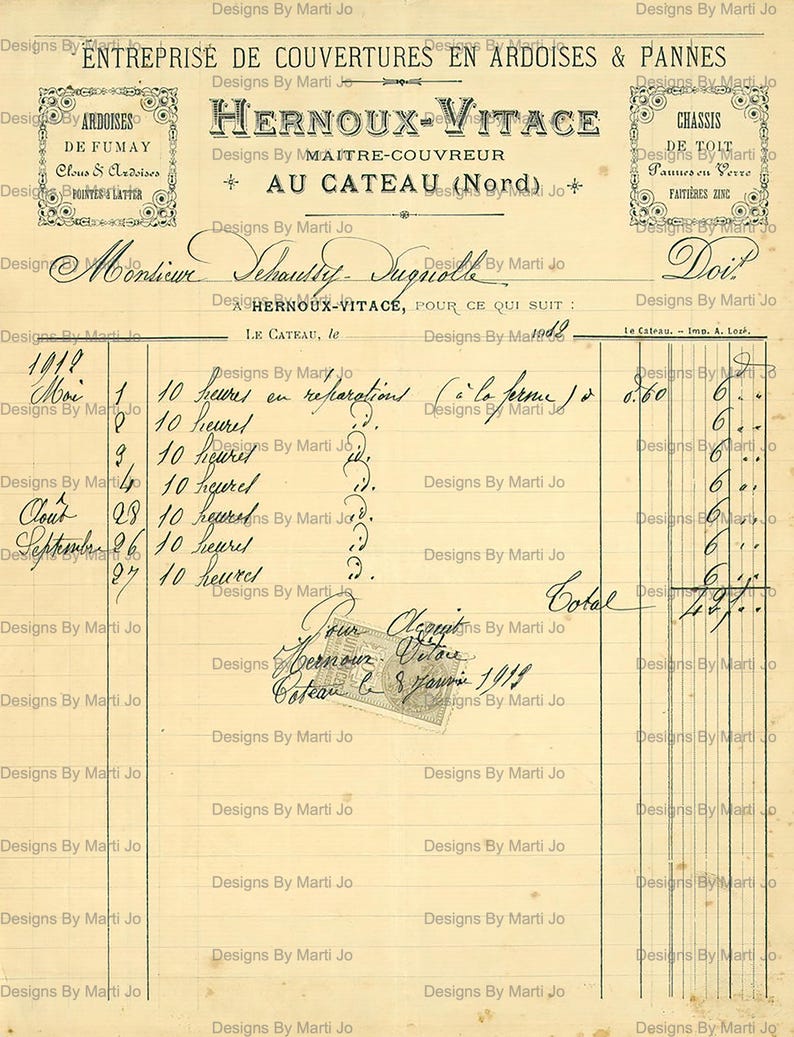 ENTREPRISE DE COUVERTURES EN ARDOISES & PANNES
ARDOISES
DE FUMAY
Clous & Ardoises
POINTES à LATTER
HERNOUX-VITACE
MAITRE-COUVREUR
AU CATEAU (Nord)
CHASSIS
DE TOIT
Pannes en Verre
FAITIÈRES ZINC
Monsieur Dehaussy- Doit
A HERNOUX-VITACE, POUR CE QUI SUIT :
LE CATEAU, le 1912
Le Cateau. – Imp. A. Lozé.
1912
Mai 1 10 heures en réparations (à la ferme) à 0.60 6 " "
2 10 heures id. 6 " "
3 10 heures id. 6 " "
4 10 heures id. 6 " "
Août 28 10 heures id. 6 " "
Septembre 26 10 heures id 6 " "
27 10 heures id. 6 " "
Total 42 " "
Pour Acquit
Hernoux-Vitace
Cateau le 8 Janvier 1913
Designs By Marti Jo